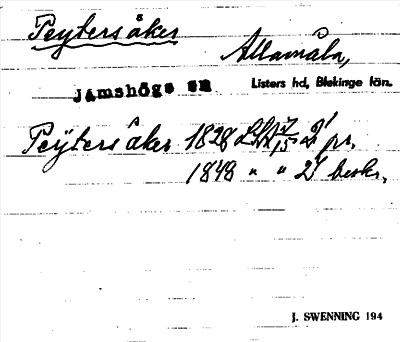 Peyters åker
Allamåla,
Jämshögs sn Listers hd, Blekinge län.
Peÿters åker 1828 LSK 7/15 2/1 pr.
1848 " " 2/1 beskr.
J. SWENNING 194